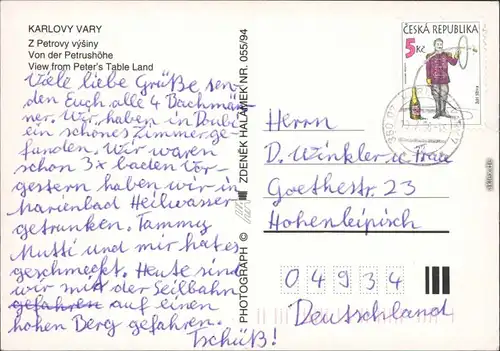 KARLOVY VARY
Z Petrovy výšiny
Von der Petrushöhe
View from Peter's Table Land
Viele liebe Grüße, sen-
den Euch alle 4 Bachmän-
ner. Wir haben in Doubi
ein schönes Zimmer ge-
funden. Wir waren
schon 3x baden. Vor-
gestern haben wir in
Marienbad Heilwasser
getrunken. Tammy
Mutti und mir hat es
geschmeckt. Heute sind
wir mit der Seilbahn
gefahren auf einen
hohen Berg gefahren.
Tschüß!
PHOTOGRAPH © ZDENEK HALÁMEK NR. 055/94
ČESKÁ REPUBLIKA
5 Kč
Herrn
D. Winkler u. Frau
Goethestr. 23
Hohenleipisch
04934
Deutschland